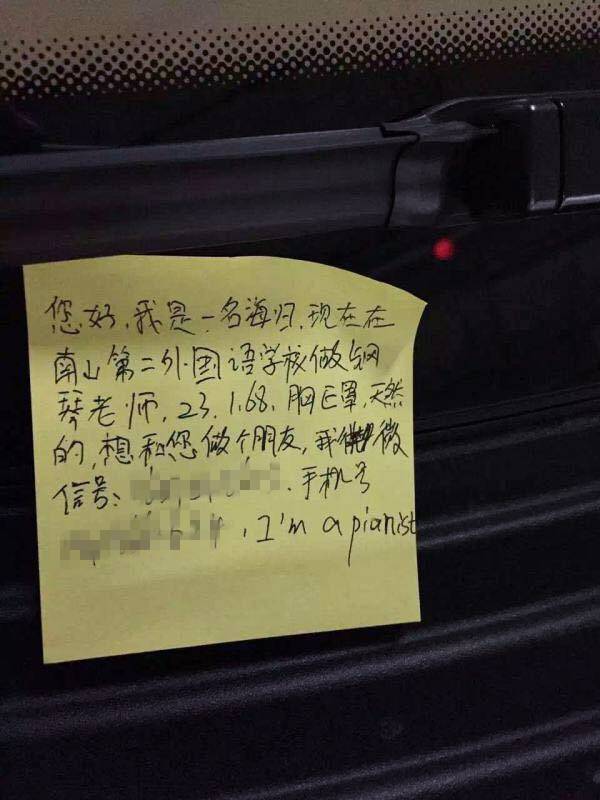 您好,我是一名海归,现在在
南山第二外国语学校做钢
琴老师,23,1.68,胸E罩,天然
的,想和您做个朋友,我微
信号:
.手机号
, I'm a pianist